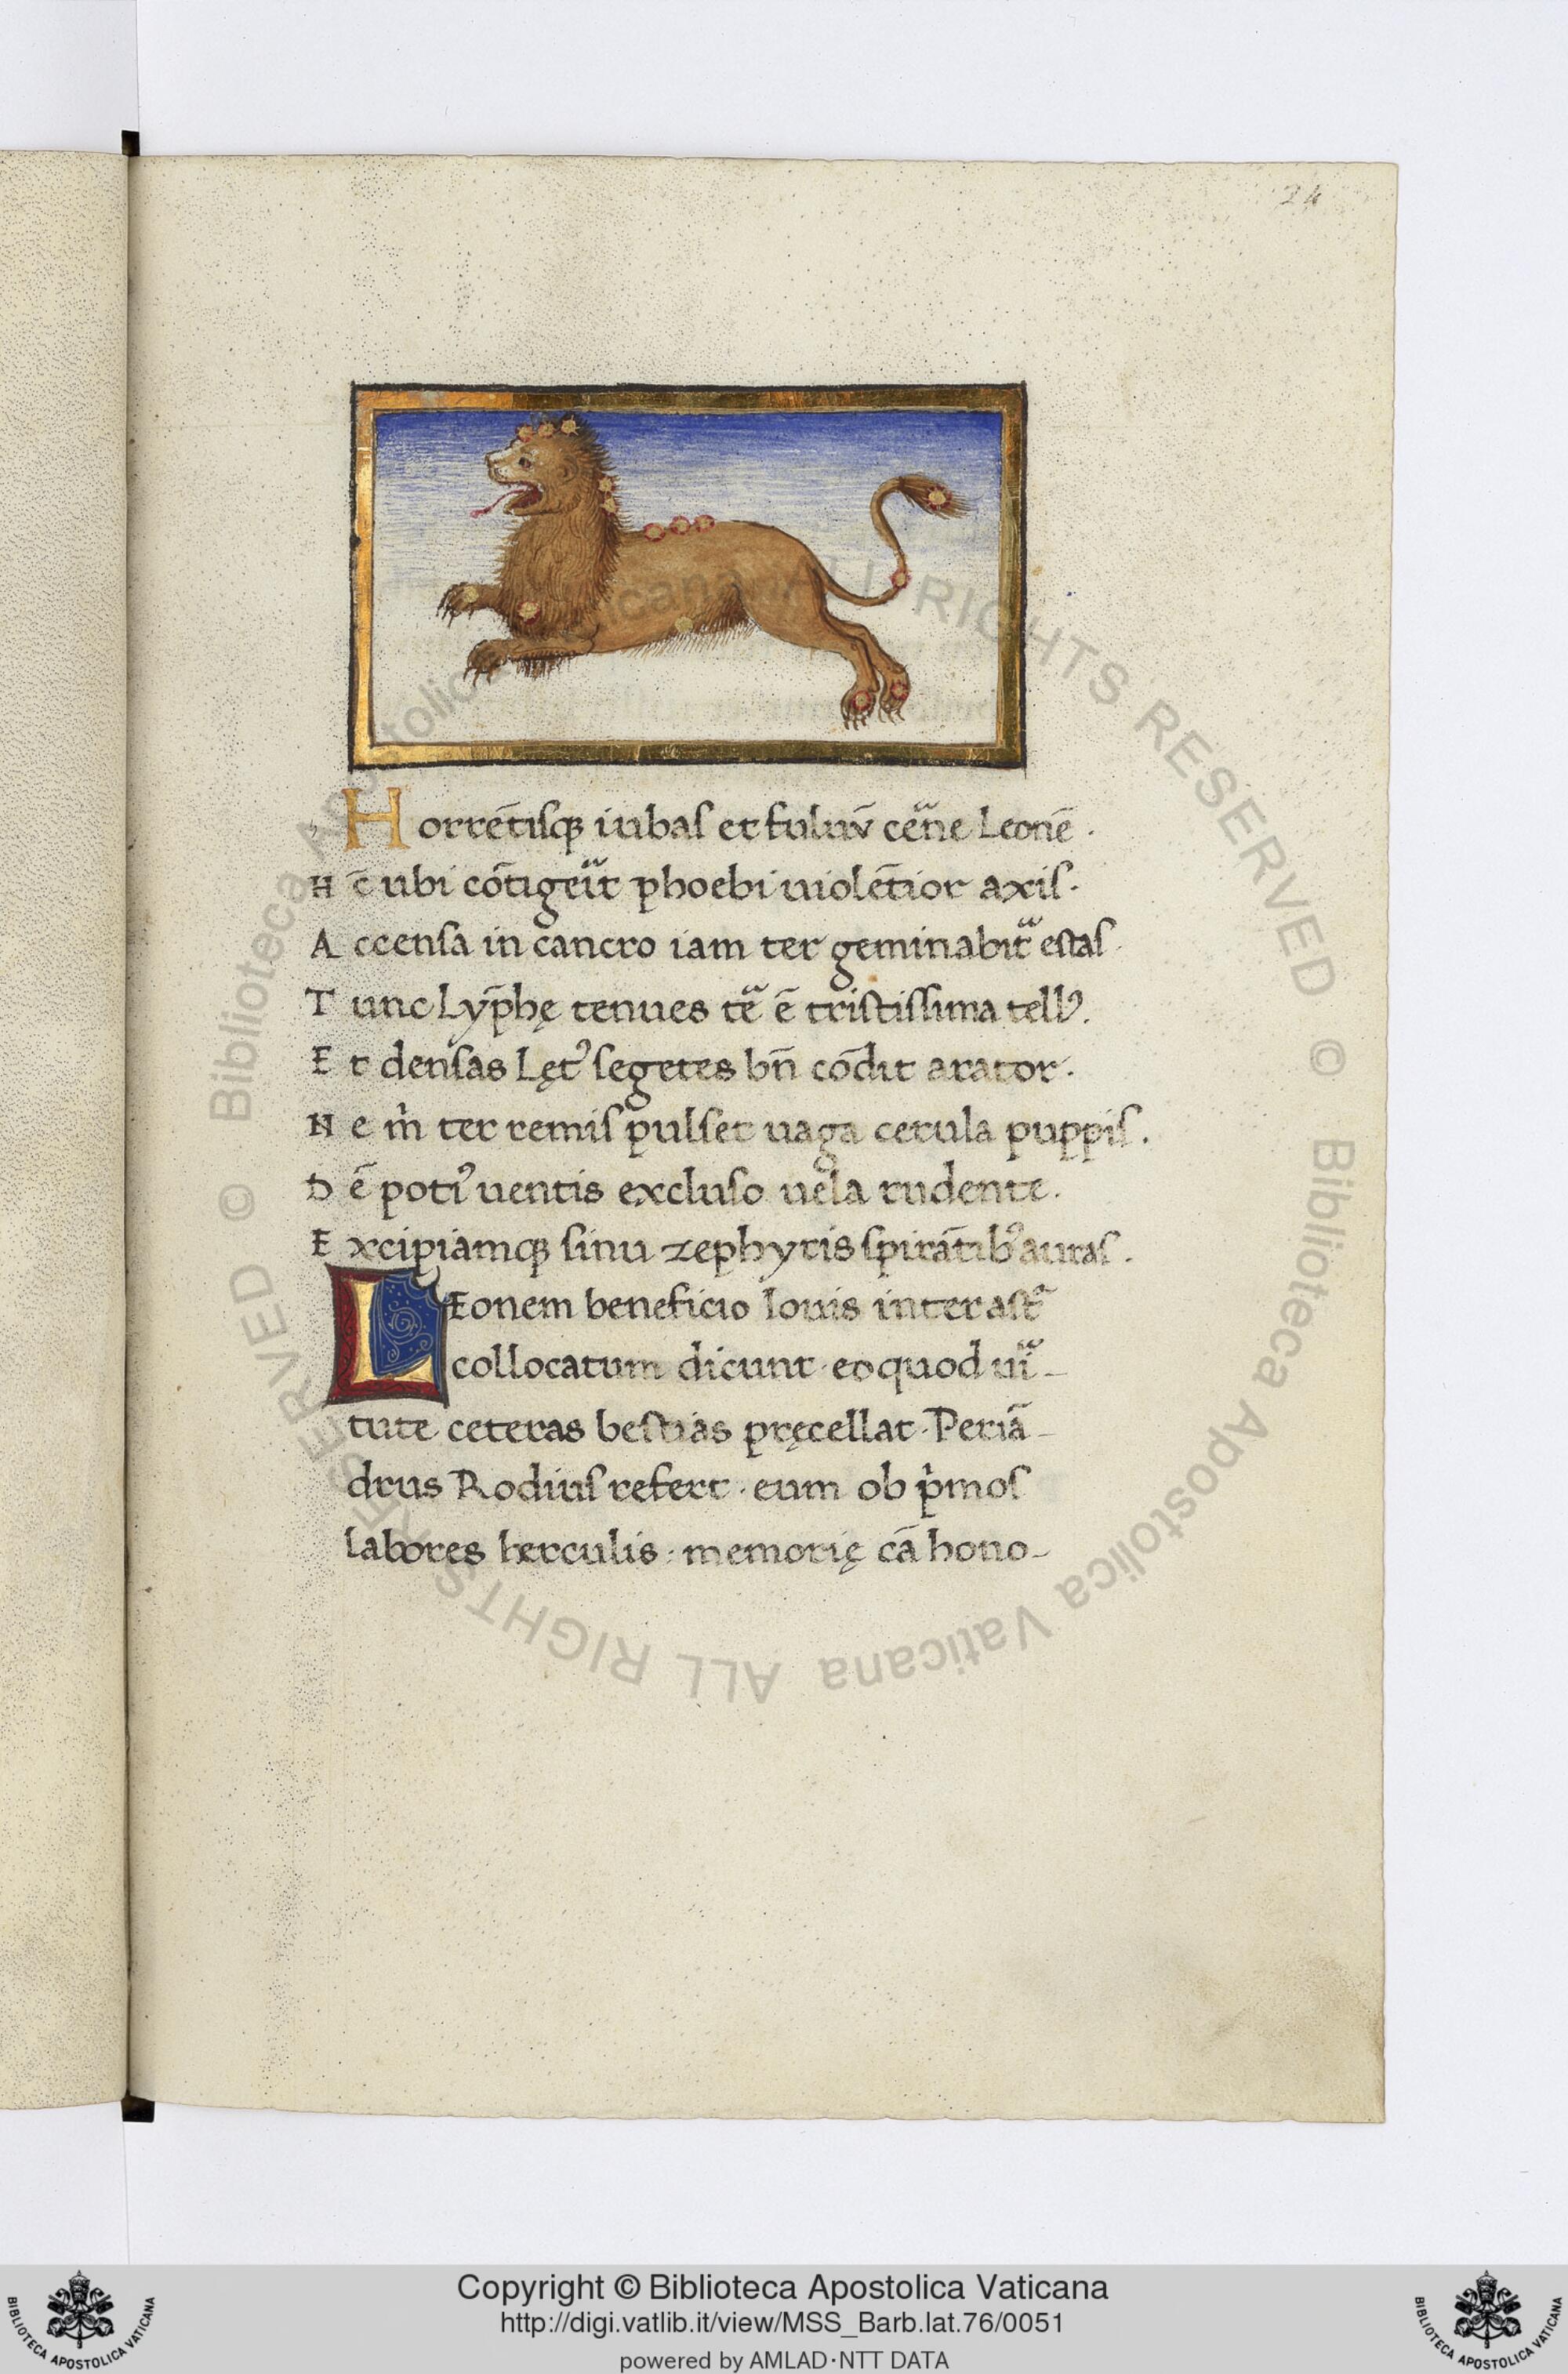 24
Horrẽtisq; iubas et fuluũ cẽne Leonẽ.
Hc̄ ubi cõtigeit phoebi uiolẽtior axis.
Accensa in cancro iam ter geminabit estas.
Tunc Lȳphę tenues tē ē tristissima tell9.
Et densas Lęt9 segetes bñ cõdit arator.
Ne m̃ ter remis pulset uaga cerula puppis.
Dē poti9 uentis excluso uela rudente.
Excipiamq; sinu zephyris spirãtib9 auras.
LEonem beneficio Iouis inter ast
collocatum dicunt· eo quod ui-
tute ceteras bestias pręcellat· Periã-
drus Rodius refert· eum ob p̃mos
labores herculis: memorię cã hono-
Copyright © Biblioteca Apostolica Vaticana
http://digi.vatlib.it/view/MSS_Barb.lat.76/0051
powered by AMLAD·NTT DATA
BIBLIOTECA APOSTOLICA VATICANA
BIBLIOTECA APOSTOLICA VATICANA
© Biblioteca Apostolica Vaticana ALL RIGHTS RESERVED
© Biblioteca Apostolica Vaticana ALL RIGHTS RESERVED